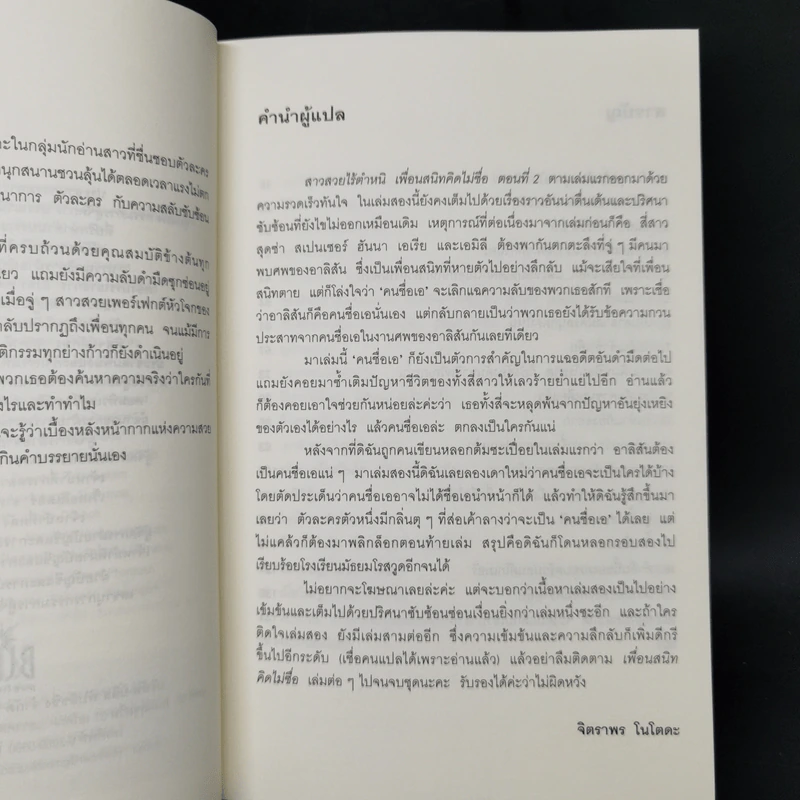 ะในกลุ่มนักอ่านสาวที่ชื่นชอบตัวละคร
นุกสนานชวนลุ้นได้ตลอดเวลาแรงไม่ตก
นาการ ตัวละคร กับความสลับซับซ้อน
ที่ครบถ้วนด้วยคุณสมบัติข้างต้นทุก
ยว แถมยังมีความลับดำมืดซุกซ่อนอยู่
เมื่อจู่ ๆ สาวสวยเพอร์เฟกต์หัวใจกของ
ลับปรากฏถึงเพื่อนทุกคน จนแม้มีการ
ติกรรมทุกย่างก้าวก็ยังดำเนินอยู่
พวกเธอต้องค้นหาความจริงว่าใครกันที่
งไรและทำทำไม
จะรู้ว่าเบื้องหลังหน้ากากแห่งความสวย
กินคำบรรยายนั่นเอง
คำนำผู้แปล
สาวสวยไร้ตำหนิ เพื่อนสนิทคิดไม่ซื่อ ตอนที่ 2 ตามเล่มแรกออกมาด้วย
ความรวดเร็วทันใจ ในเล่มสองนี้ยังคงเต็มไปด้วยเรื่องราวอันน่าตื่นเต้นและปริศนา
ซับซ้อนที่ยังไขไม่ออกเหมือนเดิม เหตุการณ์ที่ต่อเนื่องมาจากเล่มก่อนก็คือ สี่สาว
สุดซ่า สเปนเซอร์ ฮันนา เอเรีย และเอมิลี ต้องพากันตกตะลึงที่จู่ ๆ มีคนมา
พบศพของอาลิสัน ซึ่งเป็นเพื่อนสนิทที่หายตัวไปอย่างลึกลับ แม้จะเสียใจที่เพื่อน
สนิทตาย แต่ก็โล่งใจว่า ‘คนชื่อเอ’ จะเลิกแฉความลับของพวกเธอสักที เพราะเชื่อ
ว่าอาลิสันก็คือคนชื่อเอนั่นเอง แต่กลับกลายเป็นว่าพวกเธอยังได้รับข้อความกวน
ประสาทจากคนชื่อเอในงานศพของอาลิสันกันเลยทีเดียว
มาเล่มนี้ ‘คนชื่อเอ’ ก็ยังเป็นตัวการสำคัญในการแฉอดีตอันดำมืดต่อไป
แถมยังคอยมาซ้ำเติมปัญหาชีวิตของทั้งสี่สาวให้เลวร้ายย่ำแย่ไปอีก อ่านแล้ว
ก็ต้องคอยเอาใจช่วยกันหน่อยล่ะค่ะว่า เธอทั้งสี่จะหลุดพ้นจากปัญหาอันยุ่งเหยิง
ของตัวเองได้อย่างไร แล้วคนชื่อเอล่ะ ตกลงเป็นใครกันแน่
หลังจากที่ดิฉันถูกคนเขียนหลอกต้มซะเปื่อยในเล่มแรกว่า อาลิสันต้อง
เป็นคนชื่อเอแน่ ๆ มาเล่มสองนี้ดิฉันเลยลองเดาใหม่ว่าคนชื่อเอจะเป็นใครได้บ้าง
โดยตัดประเด็นว่าคนชื่อเออาจไม่ได้ชื่อเอนำหน้าก็ได้ แล้วทำให้ดิฉันรู้สึกขึ้นมา
เลยว่า ตัวละครตัวหนึ่งมีกลิ่นตุ ๆ ที่ส่อเค้าลางว่าจะเป็น ‘คนชื่อเอ’ ได้เลย แต่
ไม่แคล้วก็ต้องมาพลิกล็อกตอนท้ายเล่ม สรุปคือดิฉันก็โดนหลอกรอบสองไป
เรียบร้อยโรงเรียนมัธยมโรสวูดอีกจนได้
ไม่อยากจะโฆษณาเลยล่ะค่ะ แต่จะบอกว่าเนื้อหาเล่มสองเป็นไปอย่าง
เข้มข้นและเต็มไปด้วยปริศนาซับซ้อนซ่อนเงื่อนยิ่งกว่าเล่มหนึ่งซะอีก และถ้าใคร
ติดใจเล่มสอง ยังมีเล่มสามต่ออีก ซึ่งความเข้มข้นและความลึกลับก็เพิ่มดีกรี
ขึ้นไปอีกระดับ (เชื่อคนแปลได้เพราะอ่านแล้ว) แล้วอย่าลืมติดตาม เพื่อนสนิท
คิดไม่ซื่อ เล่มต่อ ๆ ไปจนจบชุดนะคะ รับรองได้ค่ะว่าไม่ผิดหวัง
จิตราพร โนโตดะ